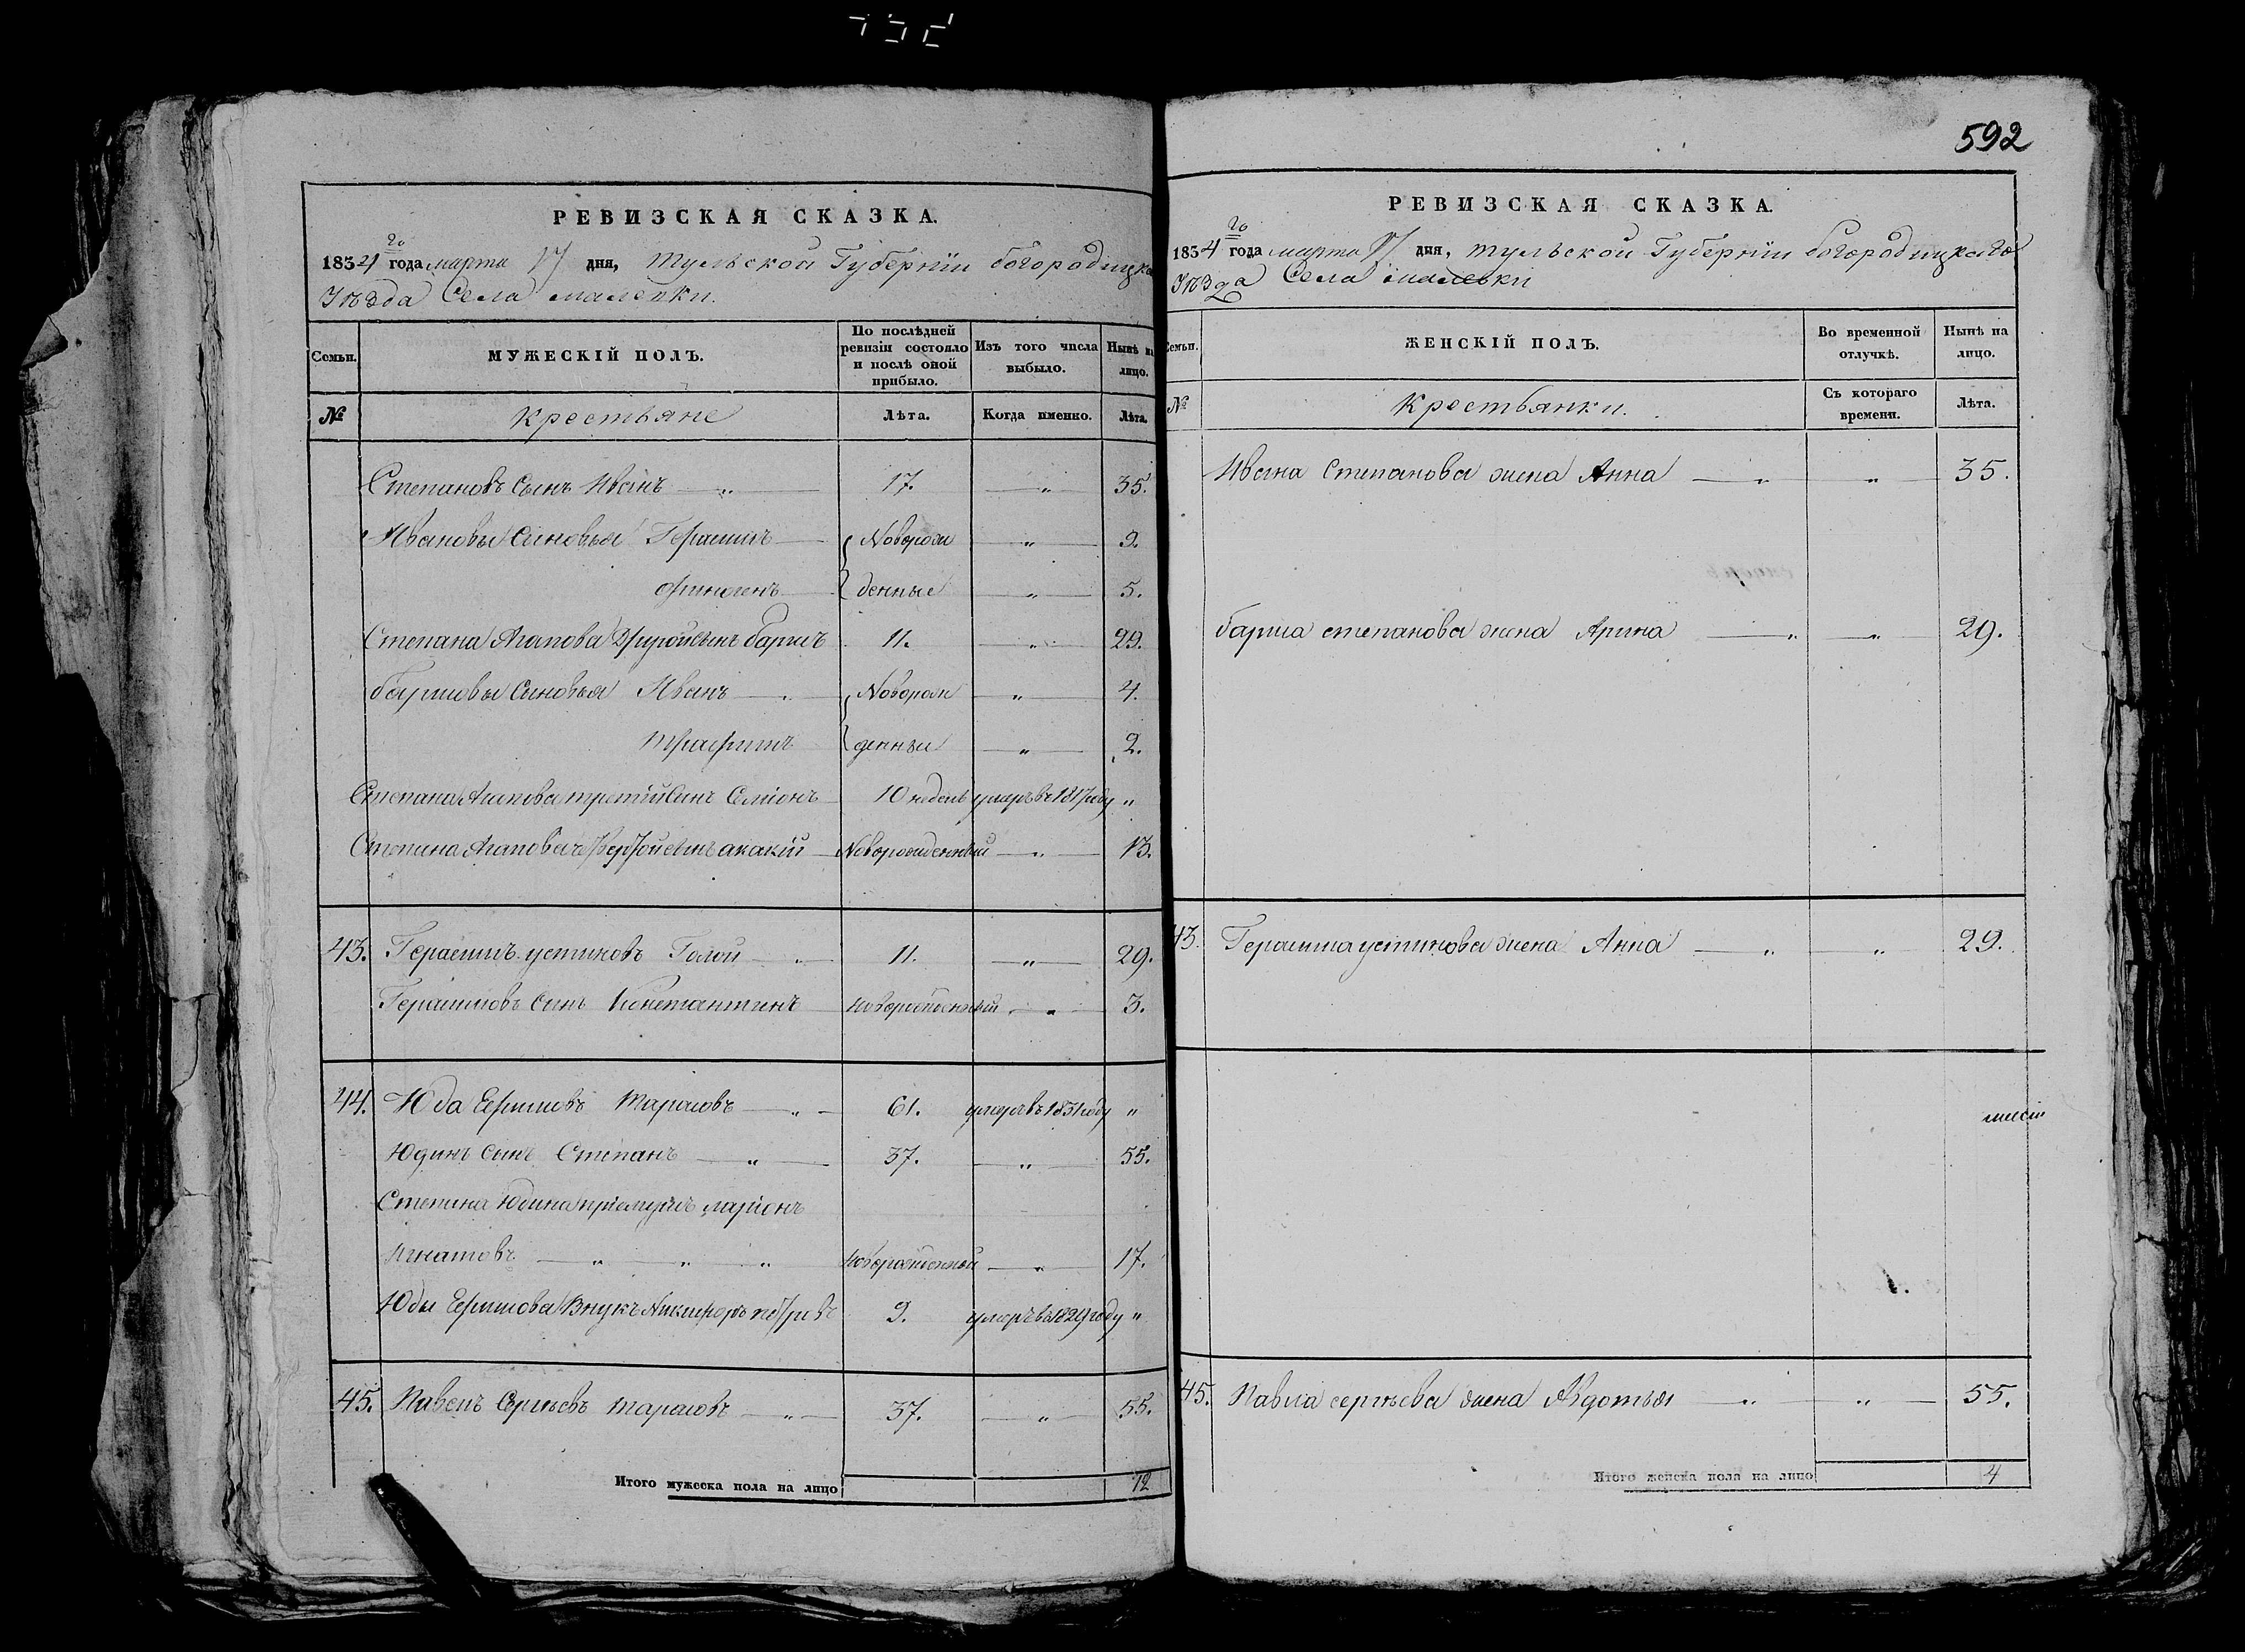 592
РЕВИЗСКАЯ СКАЗКА.
1834 го года марта 17 дня, Тульской Губернїи богородицка
Уѣзда Села малевки.
Семьи. МУЖЕСКІЙ ПОЛЪ. По послѣдней ревизіи состояло и послѣ оной прибыло. Изъ того числа выбыло. Нынѣ на лицо.
№ Крестьяне Лѣта. Когда именно. Лѣта.
Степановъ Сынъ Иванъ — „ — 17. — „ — 35.
Ивановы Сыновья Герасимъ — Новорож — „ — 9.
Финогенъ — денные — „ — 5.
Степана Агапова Другой сынъ барисъ 11. — „ — 29.
барисовы Сыновья Иванъ — „ Новорож — „ — 4.
Трафимъ денные — „ — 2.
Степана Агапова третїй Сынъ Семїонъ 10 недель умеръ въ 1817 году „
Степана Агапова четвертой сынъ акакїй — Новорожденный — „ — 13.
43. Герасимъ устиновъ Голой — „ — 11. — „ — 29.
Герасимовъ Сынъ Константинъ — новорожденный — „ — 3.
44. Юда Ефимовъ Тарасовъ — „ — 61. умеръ въ 1831 году „
Юдинъ Сынъ Степанъ — „ — 37. — „ — 55.
Степана Юдина прїемышъ ларїонъ
Игнатовъ — „ — „ — „ новорожденной — „ — 17.
Юды Ефимова Внукъ Никифоръ петровъ 9. умеръ въ 1829 году „
45. Павелъ Сергѣевъ Тарасовъ — „ — 37. — „ — 55.
Итого мужеска пола на лицо 12
РЕВИЗСКАЯ СКАЗКА.
1834 го года марта 17 дня, тульской Губернїи богородицкаго
Уѣзда Села малевки
Семьи. ЖЕНСКІЙ ПОЛЪ. Во временной отлучкѣ. Нынѣ на лицо.
№ Крестьянки. Съ котораго времени. Лѣта.
Ивана Степанова жена Анна — „ — „ — 35.
бариса степанова жена Арина — „ — „ — 29.
43. Герасима устинова жена Анна — „ — „ — 29.
45. Павла сергѣева жена Авдотья — „ — „ — 55.
Итого женска пола на лицо 4